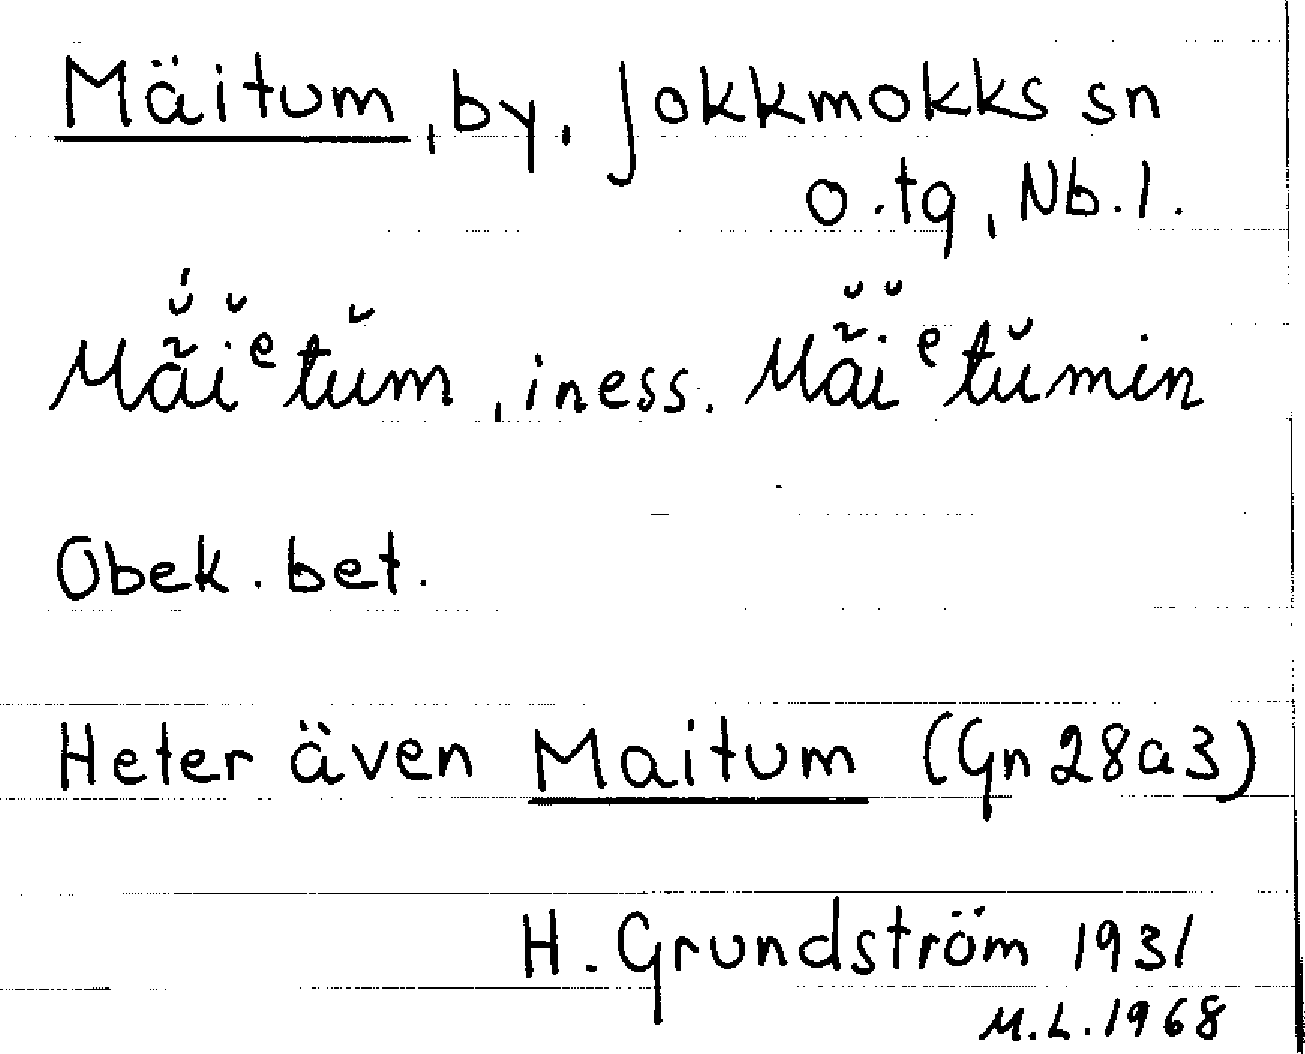 Mäitum, by, Jokkmokks sn
o.tg, Nb.l.
Mäiᵉtŭm, iness. Mäiᵉtŭmin
Obek. bet.
Heter även Maitum (Gn 28a3)
H. Grundström 1931
M.L. 1968